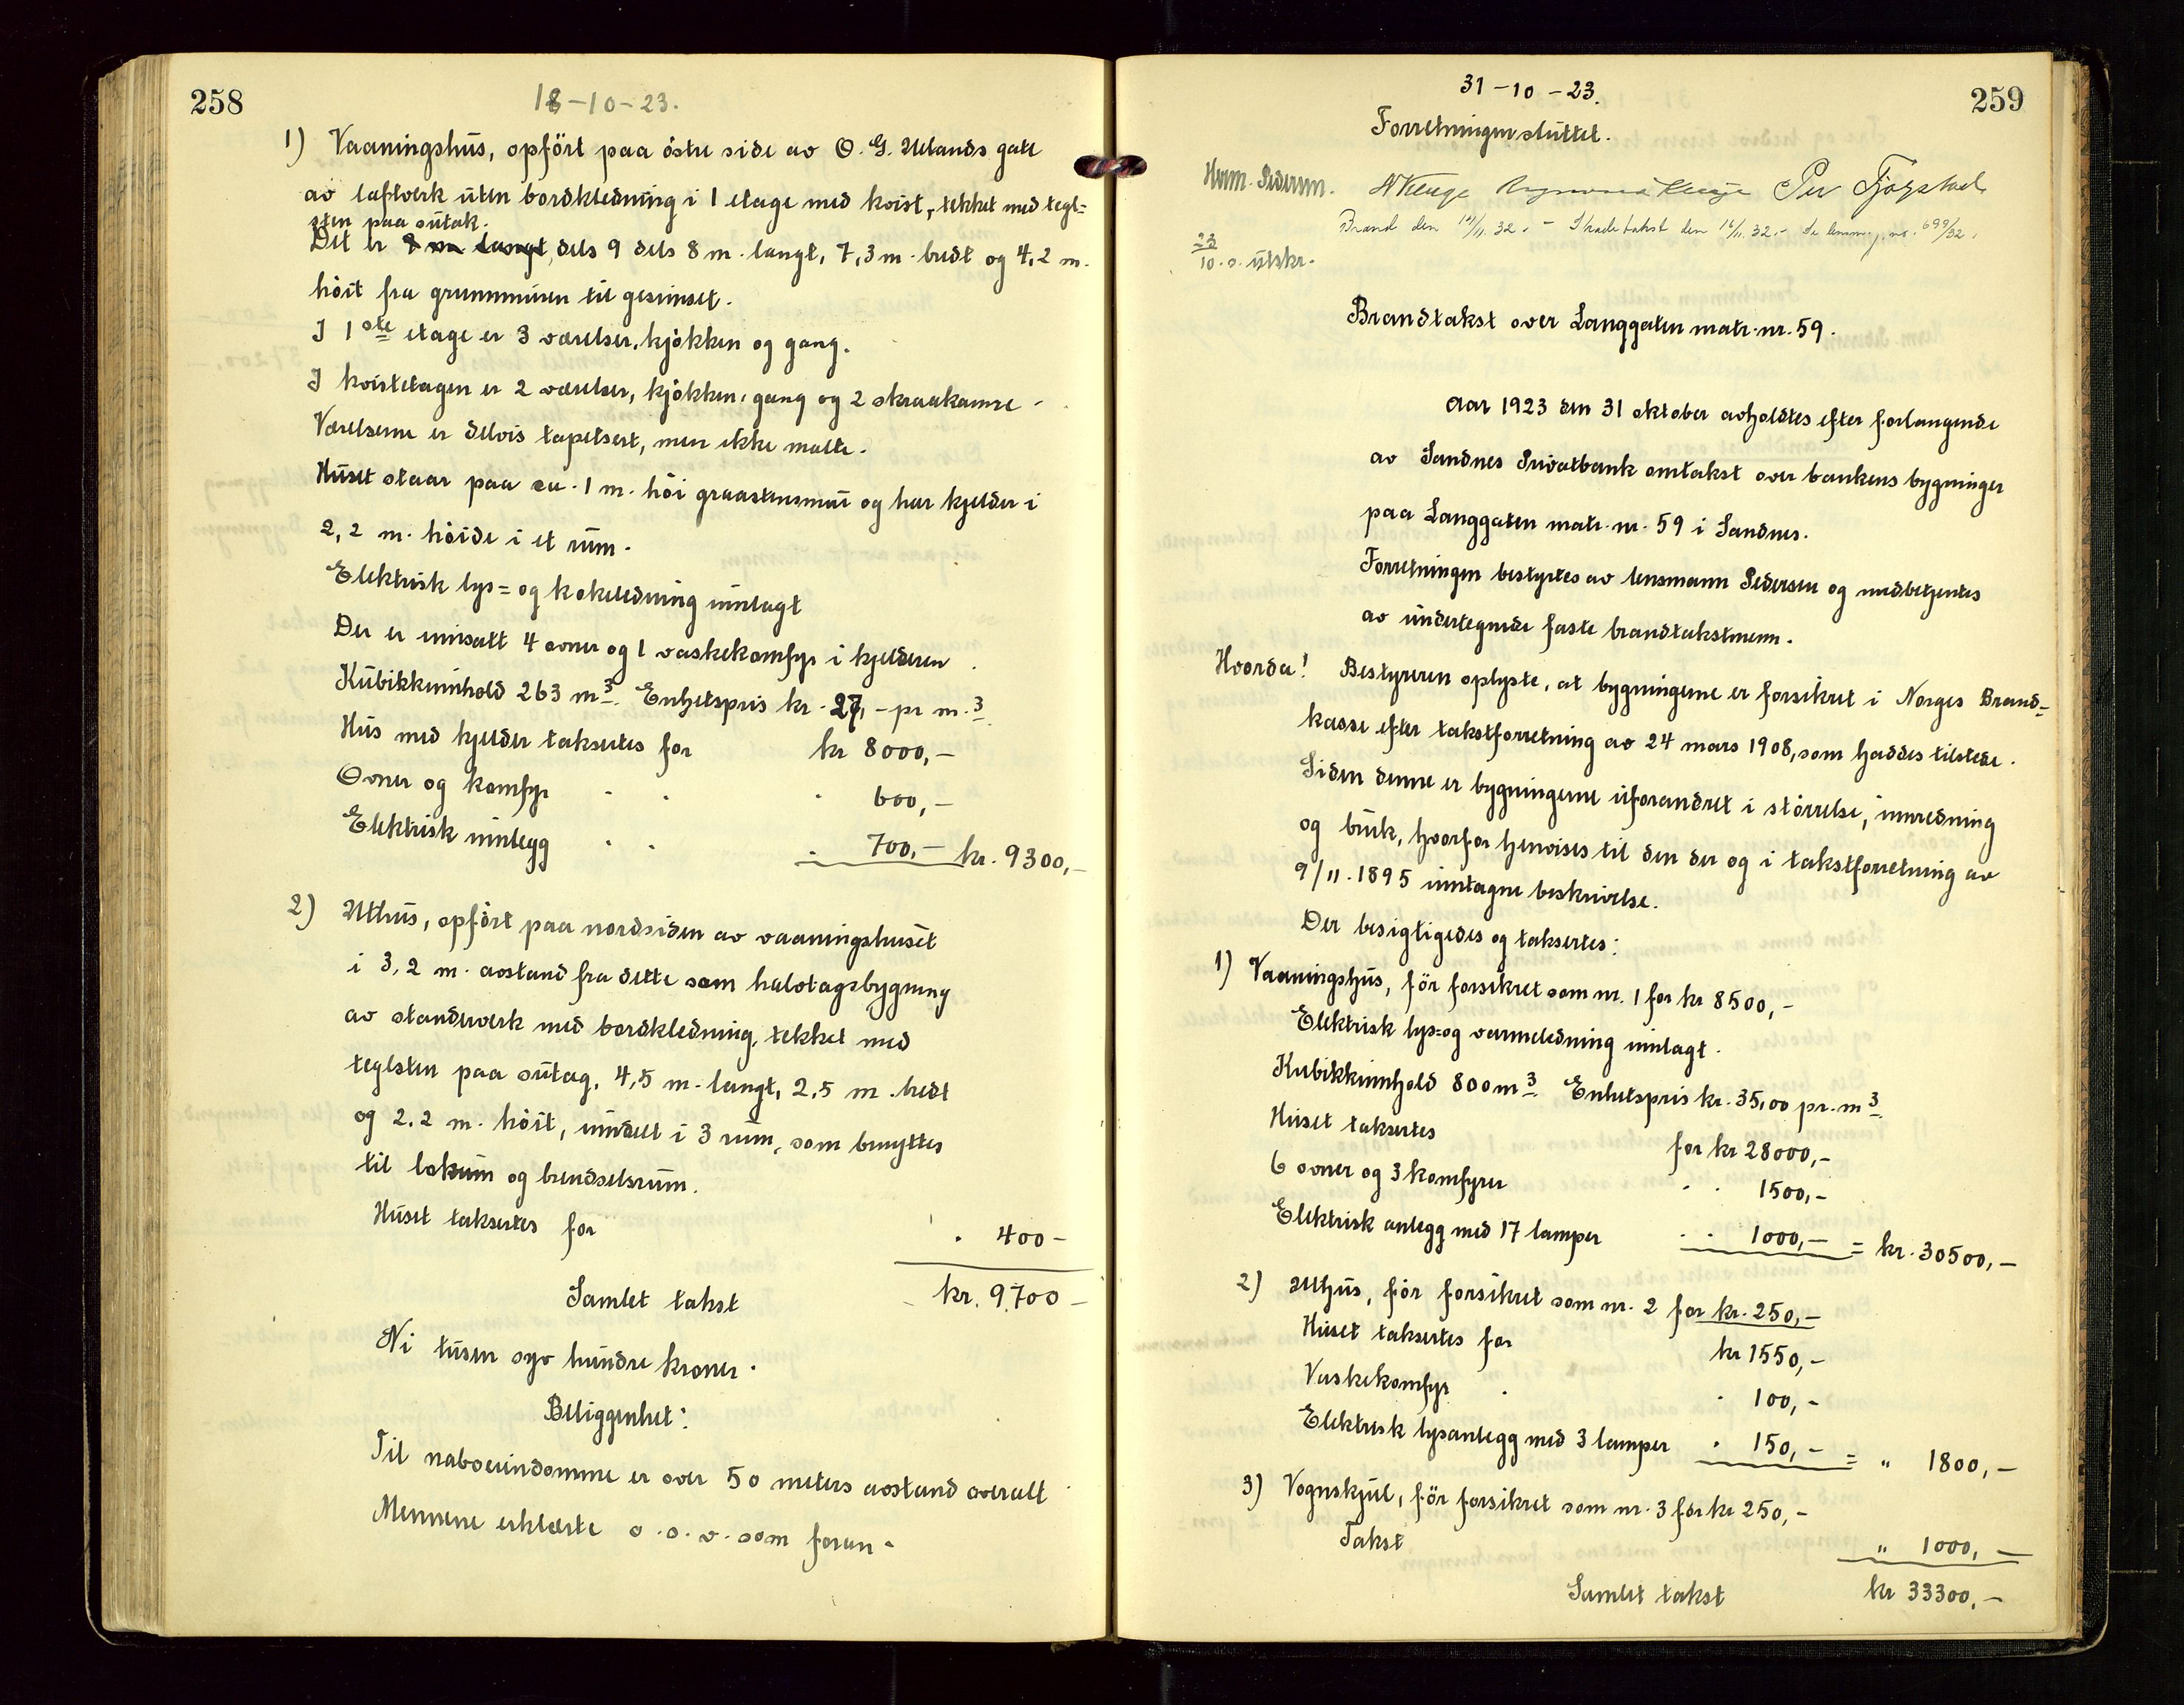 258
18-10-23.
1) Vaaningshus, opfört paa östre side av O. G. Uelands gate
av laftverk uten bordkledning i 1 etage med kvist, tekket med tegl=
sten paa sutak.
Det er 8 m langt, dels 9 dels 8 m. langt, 7,3 m. bredt og 4,2 m.
höit fra grunnmuren til gesimset.
I 1ste etage er 3 værelser, kjökken og gang.
I kvistetagen er 2 værelser, kjökken, gang og 2 skraakamre -
Værelserne er delvis tapetsert, men ikke malte.
Huset staar paa ca. 1 m. höi graastensmur og har kjelder i
2,2 m. höide i et rum.
Elektrisk lys= og kokeledning innlagt
Der er innsatt 4 ovner og 1 vaskekomfyr i kjelderen.
Kubikkinnhold 263 m3. Enhetspris kr. 27,- pr m.3
Hus med kjelder taksertes for kr 8000,-
Ovner og komfyr . . . 600,-
Elektrisk innlegg . . . 700,- kr. 9300,-
2) Uthus, opfört paa nordsiden av vaaningshuset
i 3,2 m. avstand fra dette som halvtagsbygning
av standerverk med bordkledning, tekket med
teglsten paa sutag, 4,5 m. langt, 2,5 m. bredt
og 2,2 m. höit, inndelt i 3 rum, som benyttes
til lokum og brendselsrum.
Huset taksertes for . 400-
Samlet takst kr. 9700-
Ni tusen syv hundre kroner.
Beliggenhet:
Til naboeiendomme er over 50 meters avstand overalt
Mennene erklærte o.s.v. som foran -
259
31-10-23.
Forretningen sluttet.
Herm. Pedersen. Per Fjogstad
Brand den /11.32. - Skadetakst den 16/11.32.- Se lensm. j. nr. 699/32.
23/10 s. utskr.
Brandtakst over Langgaten matr. nr. 59.
Aar 1923 den 31 oktober avholdtes efter forlangende
av Sandnes Privatbank omtakst over bankens bygninger
paa Langgaten matr. nr. 59 i Sandnes.
Forretningen bestyrtes av lensmann Pedersen og medbetjentes
av undertegnede faste brandtakstmenn.
Hvorda! Bestyreren oplyste, at bygningerne er forsikret i Norges Brand=
kasse efter takstforretning av 24 mars 1908, som haddes tilstede.
Siden denne er bygningerne uforandret i störrelse, innredning
og bruk, hvorfor henvises til den der og i takstforretning av
9/11. 1895 inntagne beskrivelse.
Der besigtigedes og taksertes:
1) Vaaningshus, för forsikret som nr. 1 for kr 8500,-
Elektrisk lys= og varmeledning innlagt.
Kubikkinnhold 800 m3. Enhetspris kr. 35,00 pr. m3.
Huset taksertes for kr 28000,-
6 ovner og 3 komfyrer . . 1500,-
Elektrisk anlegg med 17 lamper . . 1000,- = kr. 30500,-
2) Uthus, för forsikret som nr. 2 for kr. 250,-
Huset taksertes for kr 1550,-
Vaskekomfyr . . 100,-
Elektrisk lysanlegg med 3 lamper . 150,- = " 1800,-
3) Vognskjul, för forsikret som nr. 3 for kr 250,-
Takst " 1000,-
Samlet takst kr 33300,-